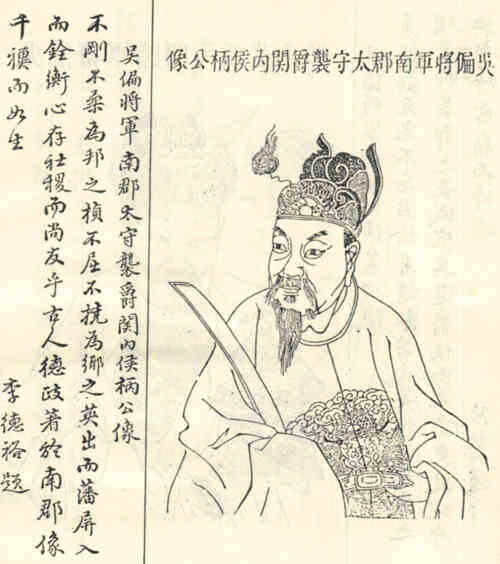 吳偏將軍南郡太守襲爵関內侯柄公像
吴偏將軍南郡太守襲爵関內侯柄公像
不剛不柔為邦之楨不屈不撓為鄉之英出而藩屏入
而銓衡心存社稷而尚友乎古人德政著於南郡像
千禩而如生 李德裕題